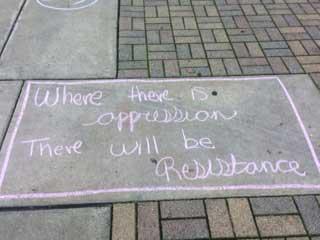 Where there is
oppression
There will be
Resistance